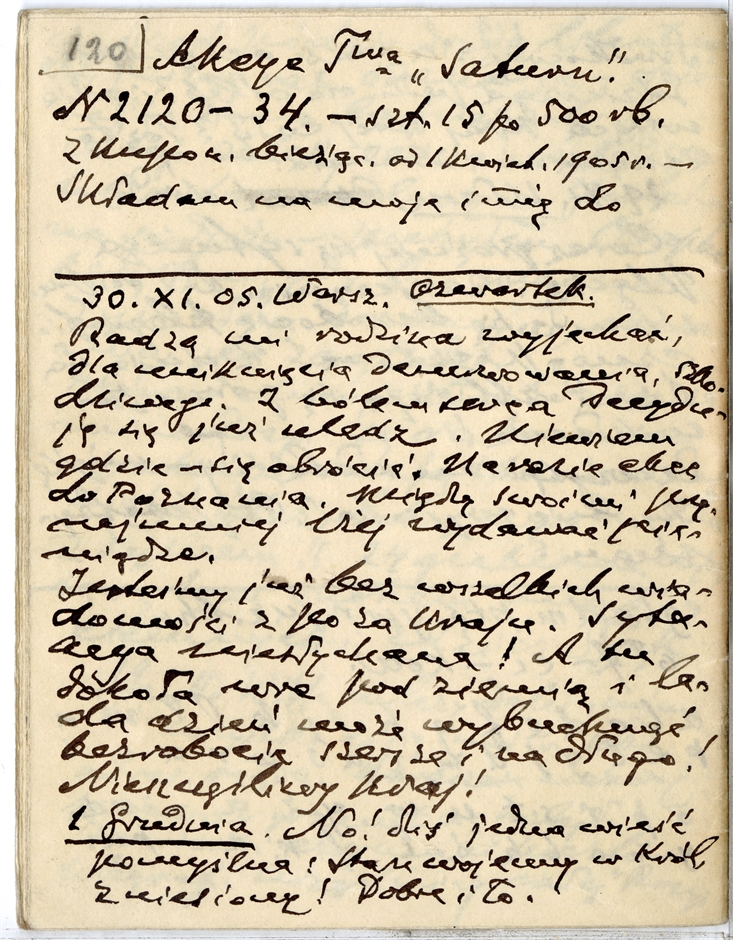 120
Akcye Twa „Saturn".
N 2120 – 34. – szt. 15 po 500 rb.
z kupon. bieżąc. od 1 kwiet. 1905 r. –
Składam na moje imię do
30. XI. 05. Warsz. Czwartek.
Radzą mi rodzina wyjechać,
dla uniknięcia denerwowania, szko-
dliwego. Z bólem serca decydu-
ję się już uledz. Niewiem
gdzie się obrócić. Narazie chcę
do Poznania. Między swoimi przy-
najmniej lżej wydawać pie-
niądze.
Jesteśmy już bez wszelkich wia-
domości z poza kraju. Sytu-
acya niesłychana! A tu
dokoła wre pod ziemią i la-
da dzień może wybuchnąć
bezrobocie szersze i na długo!
Nieszczęśliwy kraj!
1 Grudnia. No! dziś jedna wieść
pomyślna: Stan wojenny w Król.
zniesiony! Dobre i to.